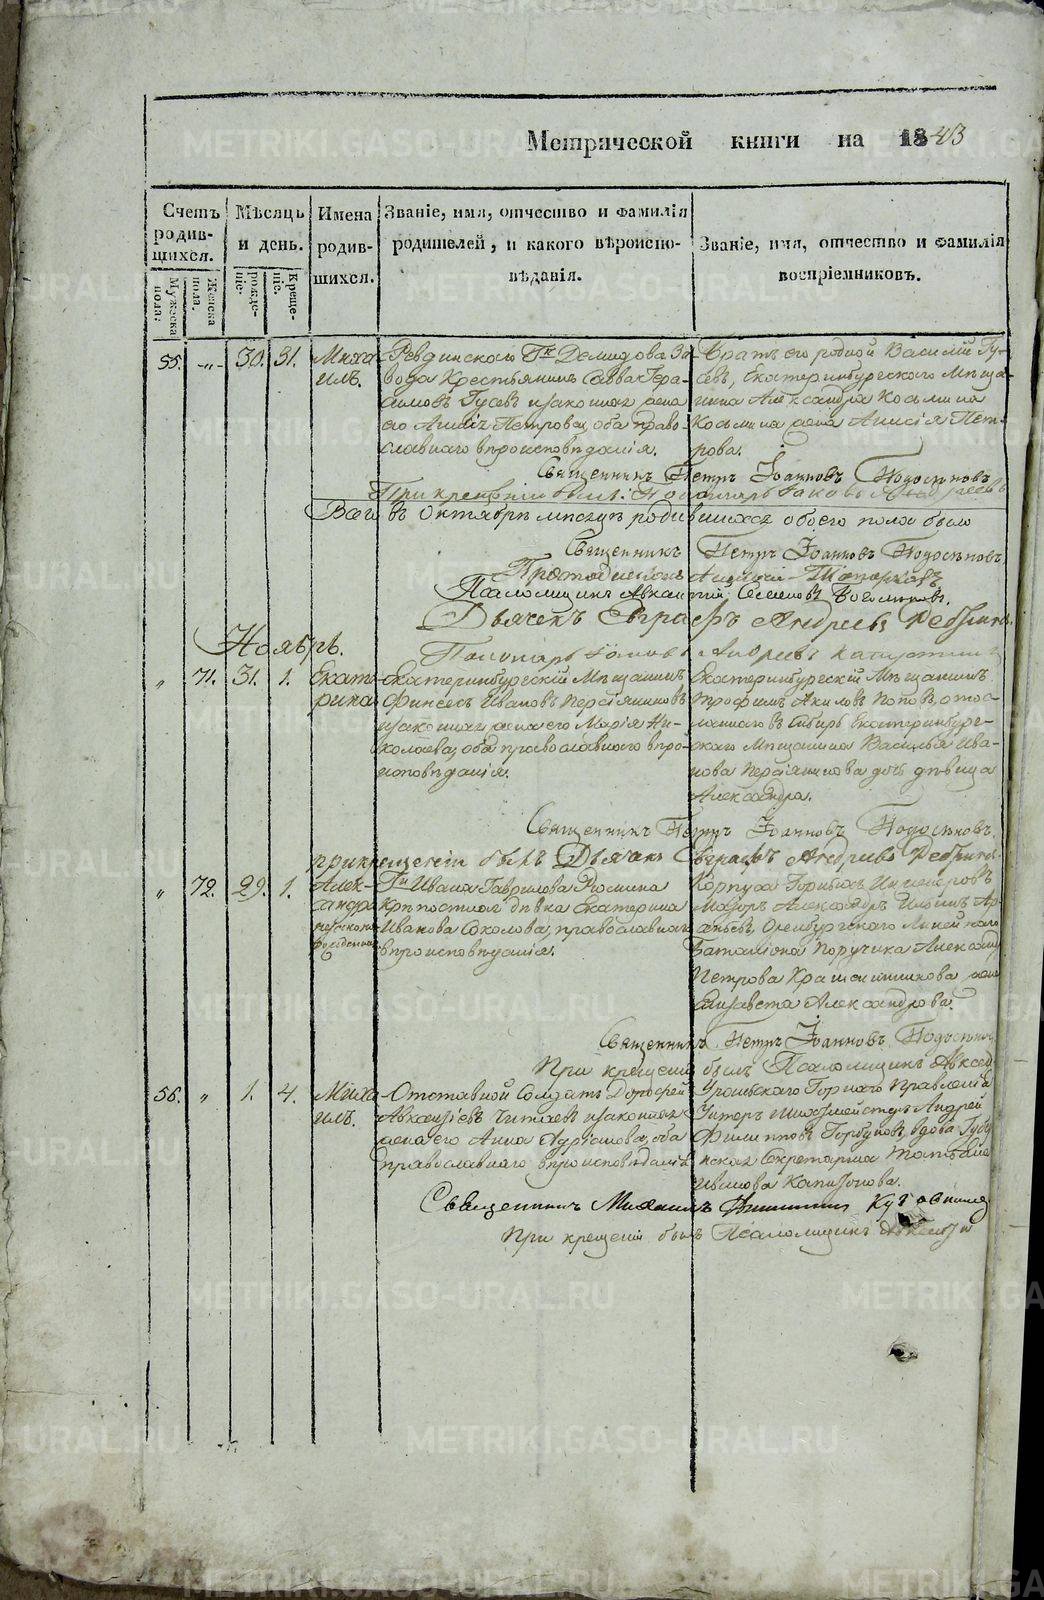 Метрической книги на 1843
Счетъ родив-шихся.
Мужеска пола.
Женска пола.
Мѣсяцъ и день.
рожде-нiе.
Креще-нiе.
Имена родив-шихся.
Званiе, имя, отчество и фамилiя
родителей, и какого вѣроиспо-
вѣданiя.
Званiе, имя, отчество и фамилiя
воспрiемниковъ.
55. -"- 30. 31.
Миха-
илъ.
Ревдинскаго Гн Демидова За-
вода Крестьянинъ Савва Гера-
симовъ Гусевъ и законная жена
его Петрова, оба право-
славнаго вѣроисповѣданiя.
Братъ его родной Василiй Гу-
севъ, Екатеринбургскаго Мѣща-
нина Александра Косьмина
Косьмина жена Анисiя Пет-
рова.
Священникъ Петръ Iоанновъ
При крещенiи былъ: Пономарь Iаковъ Андреевъ
Всего въ Октябрѣ мѣсяцѣ родившихся обоего пола было
Священникъ Петръ Iоанновъ
Протодiаконъ
Псаломщикъ Авксентiй Семеновъ Богомоловъ.
Дьячекъ Евграфъ Андреевъ
Ноябрь.
Пономарь Iаковъ Андреевъ
" 71. 31. 1.
Екате-
рина
Екатеринбургскiй Мѣщанинъ
Финеесъ Ивановъ Персіяниновъ
и законная жена его Марiя Ни-
колаева, оба православнаго вѣро-
исповѣданiя.
Екатеринбургскiй Мѣщанинъ
Трофимъ Акиловъ Поповъ, отос-
ланнаго въ Сибирь Екатеринбург-
скаго Мѣщанина Василья Ива-
нова Персіянинова дочь дѣвица
Александра.
Священникъ Петръ Iоанновъ
при крещенiи былъ Дьячекъ Евграфъ Андреевъ
" 72. 29. 1.
Алек-
сандра
незаконно
рожденная
Гн Ивана Гаврилова
Крѣпостная дѣвка Екатерина
Иванова Соколова, православнаго
вѣроисповѣданiя.
Корпуса Горныхъ Инженеровъ
Маiоръ Александръ Ильинъ Ар-
сьевъ, Оренбургскаго Линейнаго
Баталiона Поручика Александ
Петрова Крашенинникова жена
Елизавета Александрова.
Священникъ Петръ Iоанновъ
При крещенiи былъ Псаломщикъ Авксен
56. " 1. 4.
Миха-
илъ.
Отставной Солдатъ Дорофей
Авксентiевъ и законная
жена его Анна Адрiанова, оба
православнаго вѣроисповѣданiя
Уральскаго Горнаго Правленiя
Унтеръ Шихтмейстеръ Андрей
Филипповъ Горбуновъ, вдова Губер-
нская Секретарша Татьяна
Иванова Капитонова.
Священникъ Михаилъ
При крещенiи былъ Псаломщикъ Авксентiй